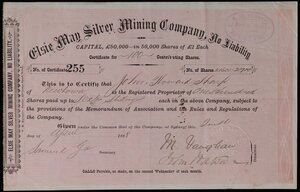 Elsie May Silver Mining Company, No Liability
CAPITAL, £50,000—IN 50,000 Shares of £1 Each
Certificate for 100 Contributing Shares.
No. of Certificate 255
No. of Shares
This is to Certify that John Howard
of is the Registered Proprietor of One Hundred
Shares paid up to each in the above Company, subject
to the provisions of the Memorandum of Association and the Rules and Regulations of
the Company.
Given under the Common Seal of the Company, at Sydney this
day of April 188
Samuel
M. Vaughan
CALLS Payable, as made, on the second Wednesday of each month.
ELSIE MAY SILVER MINING COMPANY, NO LIABILITY.